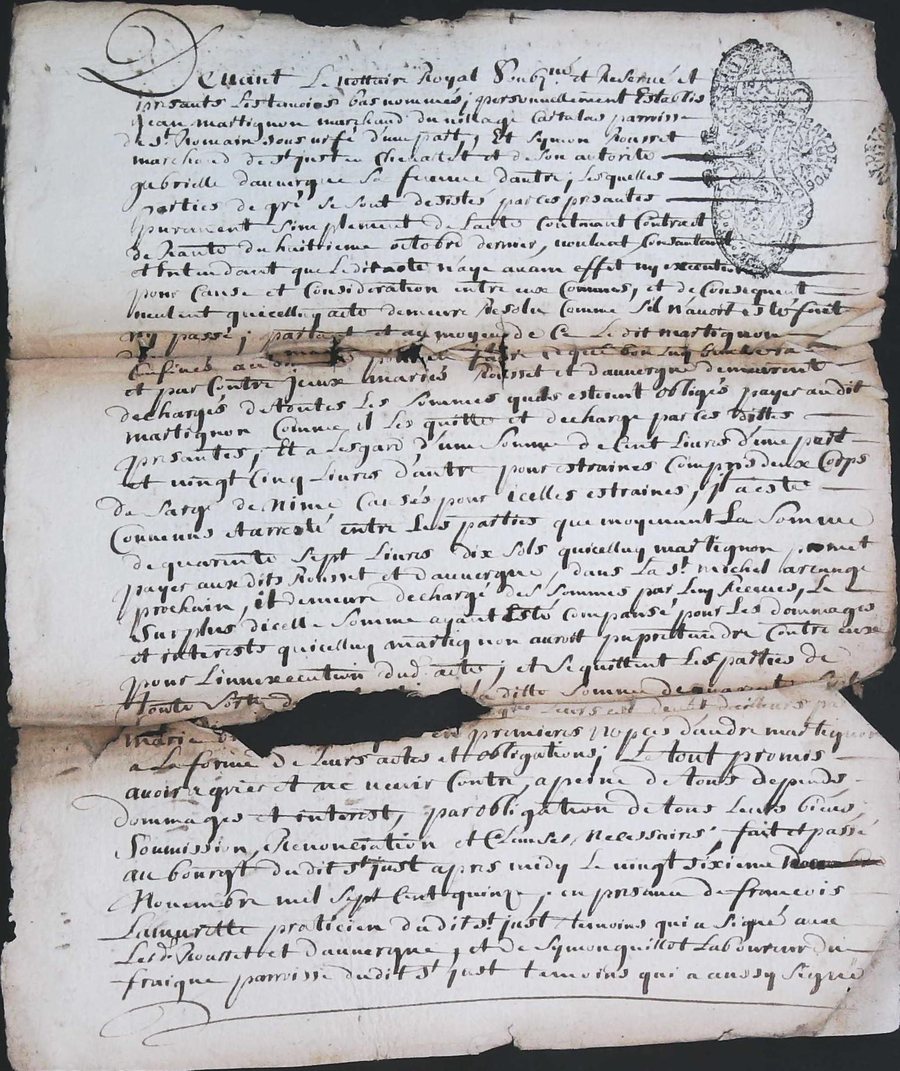 Devant Le nottaire Royal Soubz.né et Reservé et
presants les temoins bas nommés, personnellement Establis
Jean martignon marchand du village Cartalas parroisse
de St Romain sous urfé d'une part, Et Symon Rousset
marchand de St just en Chevallet et de son autorité
gabrielle dauvergne sa femme d'autre, lesquelles
parties de gré se sont desistés par ces presantes
purement simplement de Lacte Contenant Contract
de vante du huitieme octobre dernier, voulant Consantant
et Entendant que ledit acte n'aye aucun effet ny execution
pour Cause et Consideration entre eux Connues, et de Consequent
veulent qu'icelluy acte demeure Resolu Comme sil n'avoit esté fait
ny passé, partant et au moyen de Ce Le dit martignon
a que bon luy semblera
et par Contre jceux mariés Rousset et dauvergne demeurent
dechargés de toutes Les sommes qu'ils estoient obligés payer audit
martignon Comme il Les quitte et decharge par ces dittes
presantes, Et a Lesgard d'une somme de Cent Livres d'une part
et vingt Cinq Livres d'autre pour estraines Compris deux Corps
de Sarge de Nime Causés pour icelles estraines, jl a esté
Convenu et arresté entre Les parties que moyenant La somme
de quarente sept Livres dix sols qu'icelluy martignon promet
payer aux dits Rousset et dauvergne, dans la St michel arcange
prochain, il demeure dechargé des sommes par Luy Receues, Le
surplus d'icelle somme ayant Esté Compansé pour Les dommages
et interests qu'icelluy martignon auroit pu pretendre Contre eux
pour Linnexecution dud. acte, et se quittent Les parties de
toute sorte de ditte somme de quarente sept
marie en premieres nopces d'andre martignon
a La forme de Leurs actes et obligations, Le tout promis
avoir agréé et ne venir Contre, a peine de tous depends
dommages et interest, par obligation de tous Leurs biens
Soumission, Renonciation et Clauses Necessaires, fait et passé
au bourgt dudit St just apres midy Le vingt sixieme
Novembre mil sept Cent quinze, en presance de françois
Lamurette praticien dudit St just temoins qui a signé avec
Les d. Rousset et dauvergne, et de Symon quillot Laboureur du
fraigne parroisse dudit St just temoins qui a aussy signé